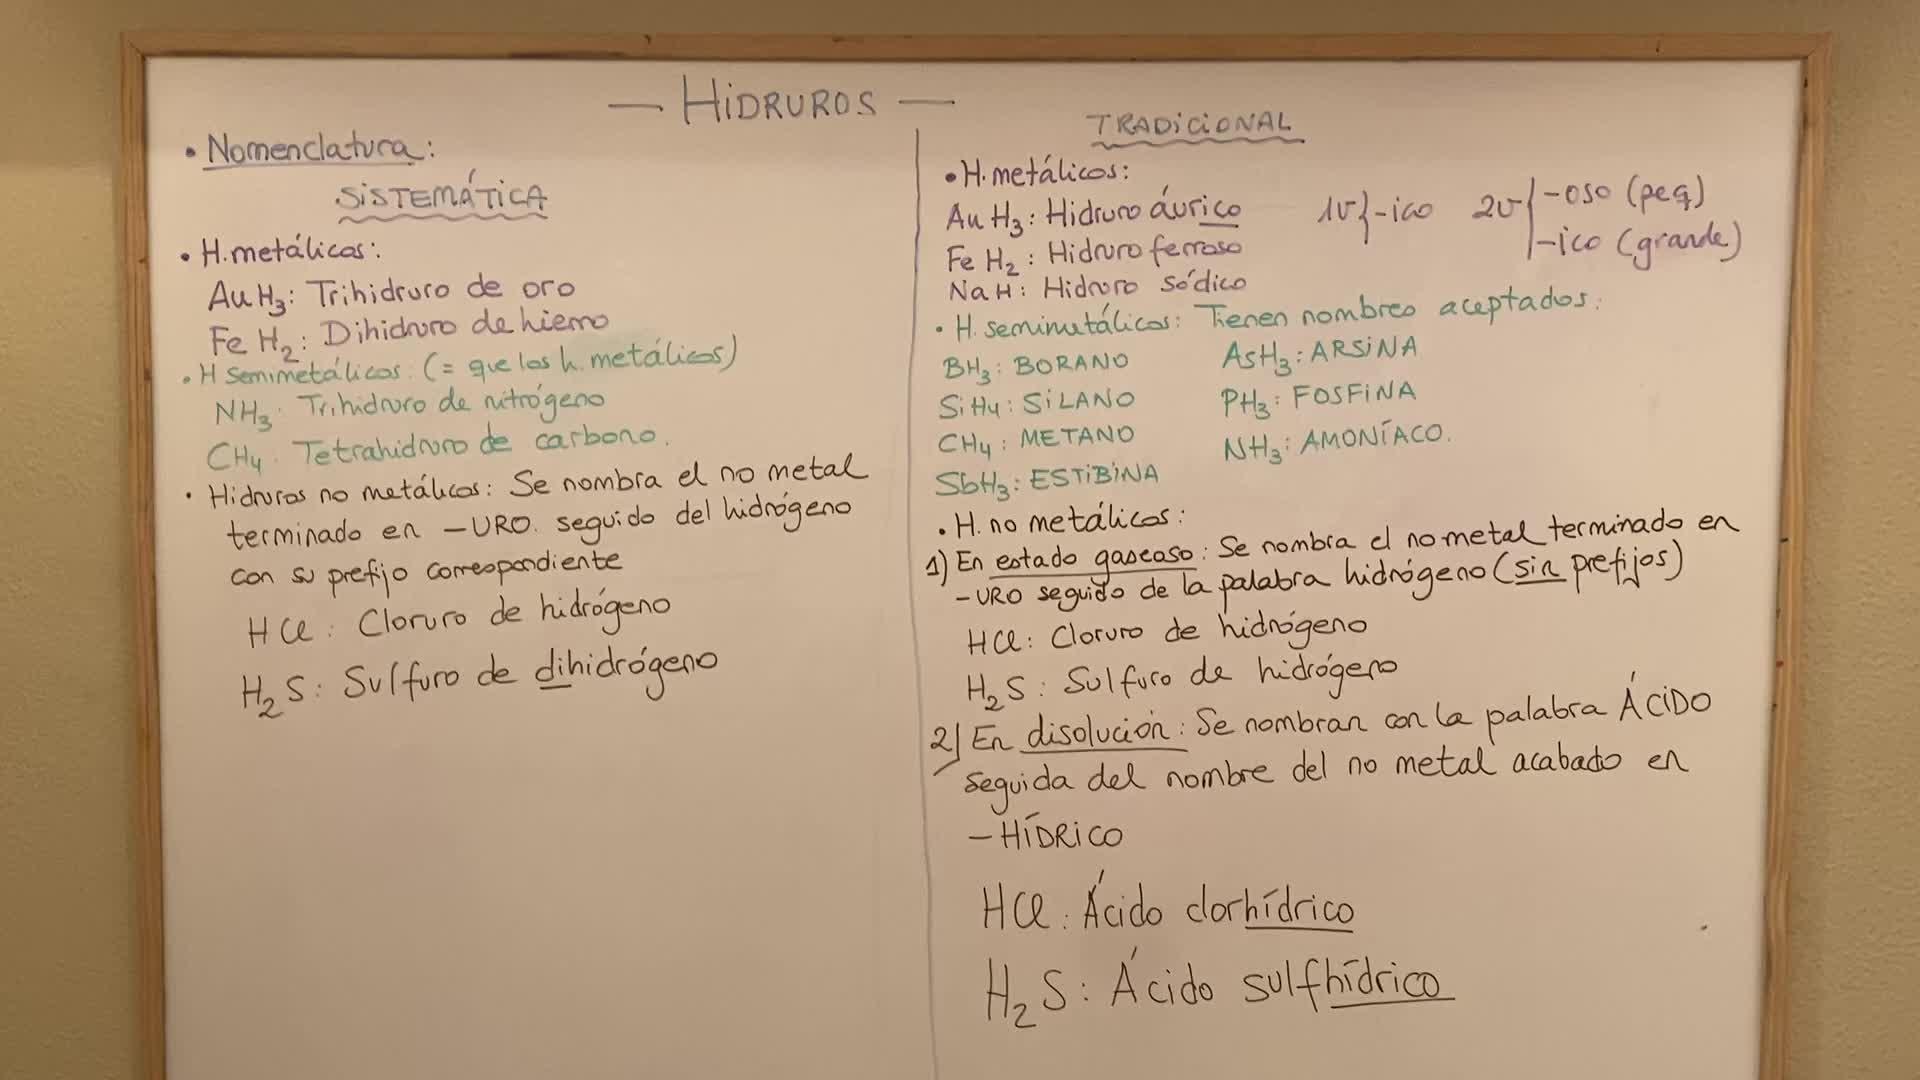 — HiDRUROS —
• Nomenclatura:
SiSTEMÁTiCA
• H.metálicos:
AuH3: Trihidruro de oro
FeH2: Dihidruro de hierro
• H semimetálicos: (= que los h. metálicos)
NH3: Trihidruro de nitrógeno
CH4: Tetrahidruro de carbono.
• Hidruros no metálicos: Se nombra el no metal
terminado en –URO. seguido del hidrógeno
con su prefijo correspondiente
HCl: Cloruro de hidrógeno
H2S: Sulfuro de dihidrógeno
TRADiCiONAL
• H.metálicos:
AuH3: Hidruro áurico 1v}-ico 2v{-oso (peq)
-ico (grande)
FeH2: Hidruro ferroso
NaH: Hidruro sódico
• H. semimetálicos: Tienen nombres aceptados:
BH3: BORANO AsH3: ARSiNA
SiH4: SiLANO PH3: FOSFiNA
CH4: METANO NH3: AMONÍACO.
SbH3: ESTiBiNA
• H. no metálicos:
1) En estado gaseoso: Se nombra el no metal terminado en
–URO seguido de la palabra hidrógeno (sin prefijos)
HCl: Cloruro de hidrógeno
H2S: Sulfuro de hidrógeno
2) En disolución: Se nombran con la palabra ÁCiDO
seguida del nombre del no metal acabado en
–HÍDRiCO
HCl: Ácido clorhídrico
H2S: Ácido sulfhídrico